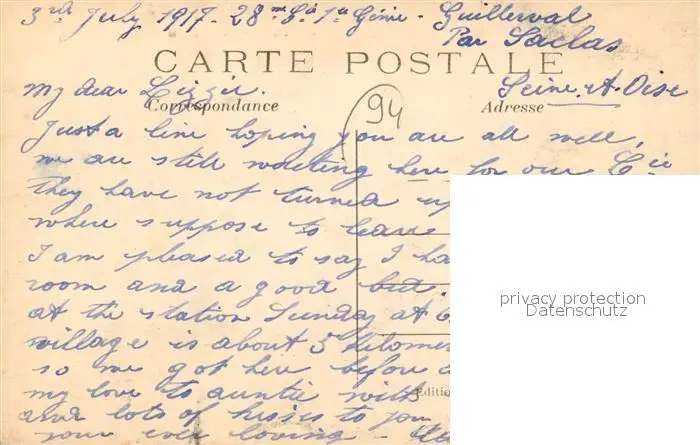 3rd July 1917. 28me Cie 1er Génie - Guillerval
Par Saclas
CARTE POSTALE
Seine et Oise
My dear Lizzie.
Correspondance
Adresse
94
Just a line hoping you are all well,
we are still waiting here for our Cie
they have not turned up
where suppose to leave
I am pleased to say I ha
room and a good but
at the station Sunday at 6
village is about 5 kilome
so me got here before
my love to auntie with
and lots of kisses to you
your ever loving -
Edition
privacy protection
Datenschutz